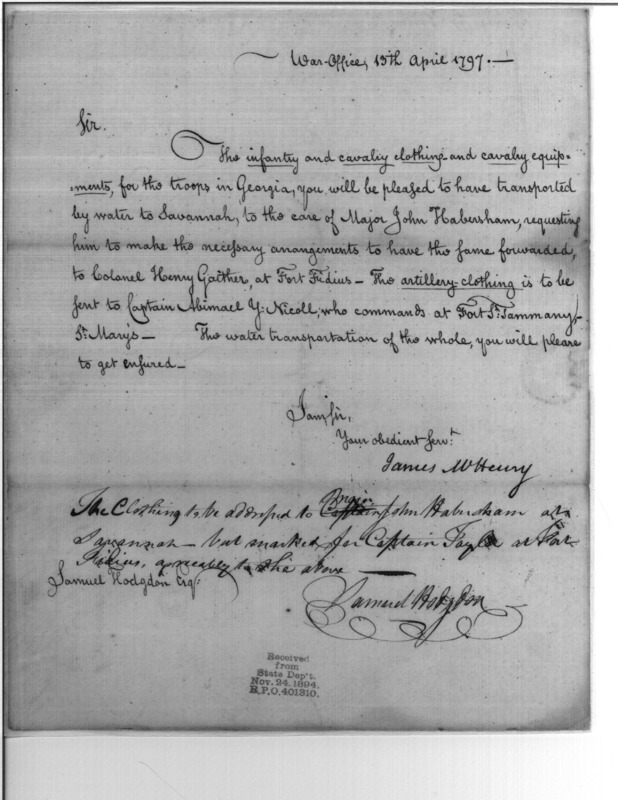 War-Office, 15th April 1797.—
Sir.
The infantry and cavalry clothing and cavalry equip-
-ments, for the troops in Georgia, you will be pleased to have transported
by water to Savannah, to the care of Major John Habersham, requesting
him to make the necessary arrangements to have the same forwarded,
to Colonel Henry Gaither, at Fort Fidius— The artillery-clothing is to be
sent to Captain Abimael Y. Nicoll, who commands at Fort St. Tammany,
St. Mary's— The water transportation of the whole, you will please
to get ensured—
I am, Sir,
Your obedient Servt.
James McHenry
The Clothing to be addressed to Major John Habersham at
Savannah— but marked for Captain at Fort
Fidius, agreeably to the above—
Samuel Hodgdon Esqr.
Samuel Hodgdon
Received
from
State Dep't.
Nov. 24. 1894.
R.P.O. 401310.